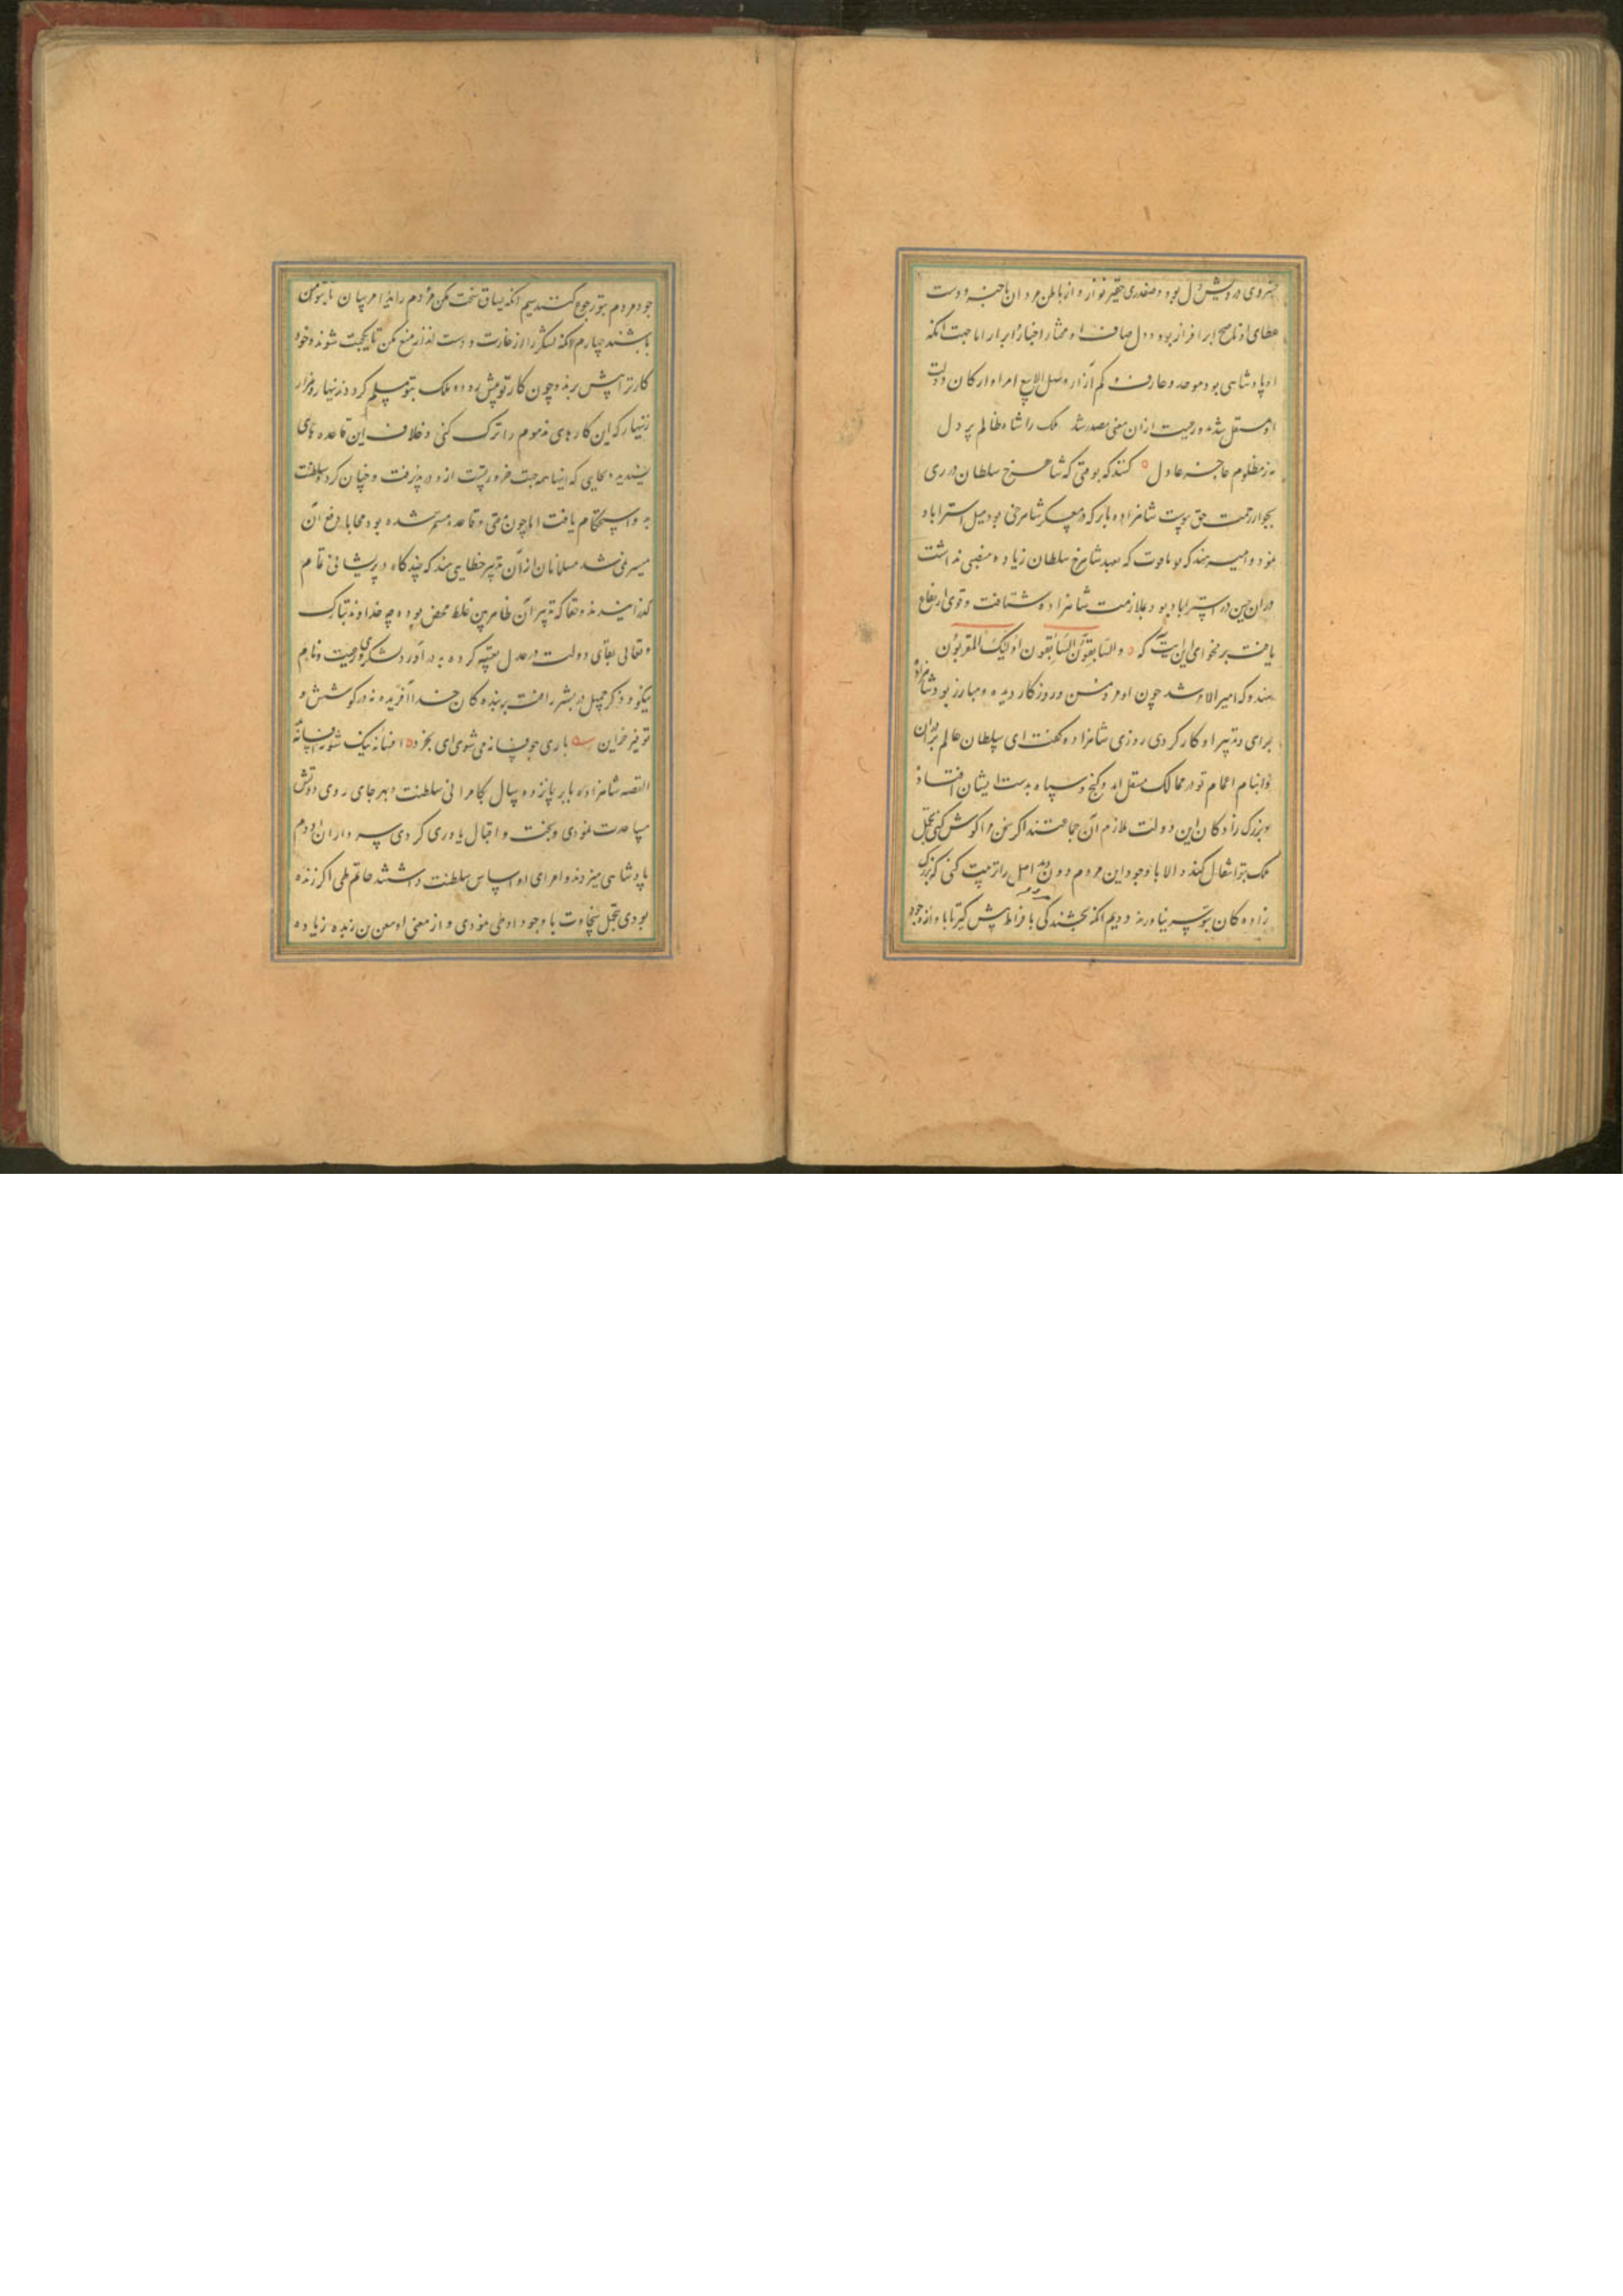 خسروی درویش دل بود و صفدری حقیر نواز و از باطن مردان باخبر و دست
عطای او ناسخ ابر افراز بود و دل صاف او مختار اخیار و ابرار اما جهت آنکه
او پادشاهی بود موحد و عارف و کم آزار و سهل البیع امرا و ارکان دولت
او مستقل شدند و رعیت ازان معنی متضرر شد ملک را شاه ظالم پر دل
به ز مظلوم عاجز عادل کنند که بوقتی که شاهرخ سلطان در ری
بجوار رحمت حق پیوست شاهزاده بابر که در معسکر شاهرخی بود میل استراباد
نمود و امیر هندوکه که بعهد شاهرخ سلطان زیاده منصبی نداشت
دران حین در استراباد بود بملازمت شاهزاده شتافت و قوی ارتفاع
یافت بر فحوای این آیت که والسابقون السابقون اولیک المقربون
هندوکه امیر الامرا شد چون او مرد مسن و روزگار دیده و مبارز بود شاهزاده
برای و تدبیر او کار کردی روزی شاهزاده را گفت ای سلطان عالم برادران
و ابنای اعمام تو در ممالک مستقل اند و گنج و سپاه بدست ایشان افتاد
و بزرگ زادگان این دولت ملازم آن جماعتند اگر سخن مرا گوش کنی یحتمل
ملک بتو انتقال کند و الا با وجود این مردم دون و بد اصل را تربیت کنی که بزرگ
زاده کان بتو سر نیاورند دویم آنکه بخشندگی بافراط پیش گیر تا با وازه جود
جود مردم بتو رجوع کنند سیم آنکه یساق سخت مکن و مردم را ایذا مرسان تا بتو ایمن
باشند چهارم آنکه لشکر را از غارت و دست انداز منع مکن تا یکجهت شوند و خود
کار ترا پیش برند و چون کار تو پیش رود و ملک بتو مسلم گردد زینهار و هزار
زینهار که این کارهای مذموم را ترک کنی و خلاف این قاعده های
پسندیده بجای که اینها همه جهت ضرورتست ازو در پذیرفت و چنان کرد و سلطنت
به و استحکام یافت اما چون مدتی قاعده مستمر شده بود محابا و دفع آن
میسر نمی شد مسلمانان ازان تدبیر خطا می بینند که چندگاه در پریشانی تمام
گذرانیدند و حقا که تدبیر آن ظاهربین غلط محض بوده چه خداوند تبارک
و تعالی بقای دولت در عدل تعبیه کرده نه در آزردن لشکری و رعیت و نام
نیکو و ذکر جمیل در نشر رافت بر بنده کان خدا آفریده نه در کوشش و
توفیر خزاین باری چو فسانه می شوی ای بخرد افسانه نیک شو نه افسانه بد
القصه شاهزاده بابر پانزده سال بکامرانی سلطنت و بهر جای روی آوردیش
مساعدت نمودی و بخت و اقبال یاوری کردی سرداران او دم
پادشاهی میزدند و امرای او اساس سلطنت داشتند حاتم طی اگر زنده
بودی تجمل سخاوت با وجود او طی نمودی و از معنی او معن بن زایده زیاده